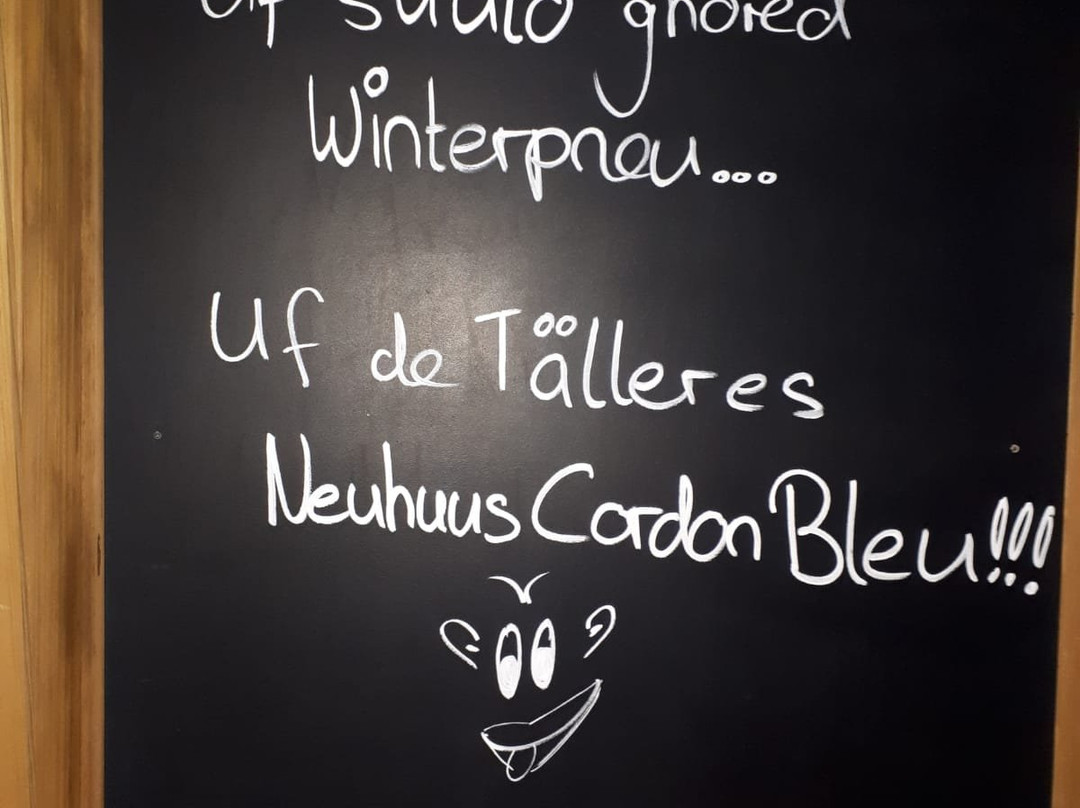 Uf s Auto ghöred
Winterpneu...
Uf de Tälleres
Neuhuus Cordon Bleu!!!